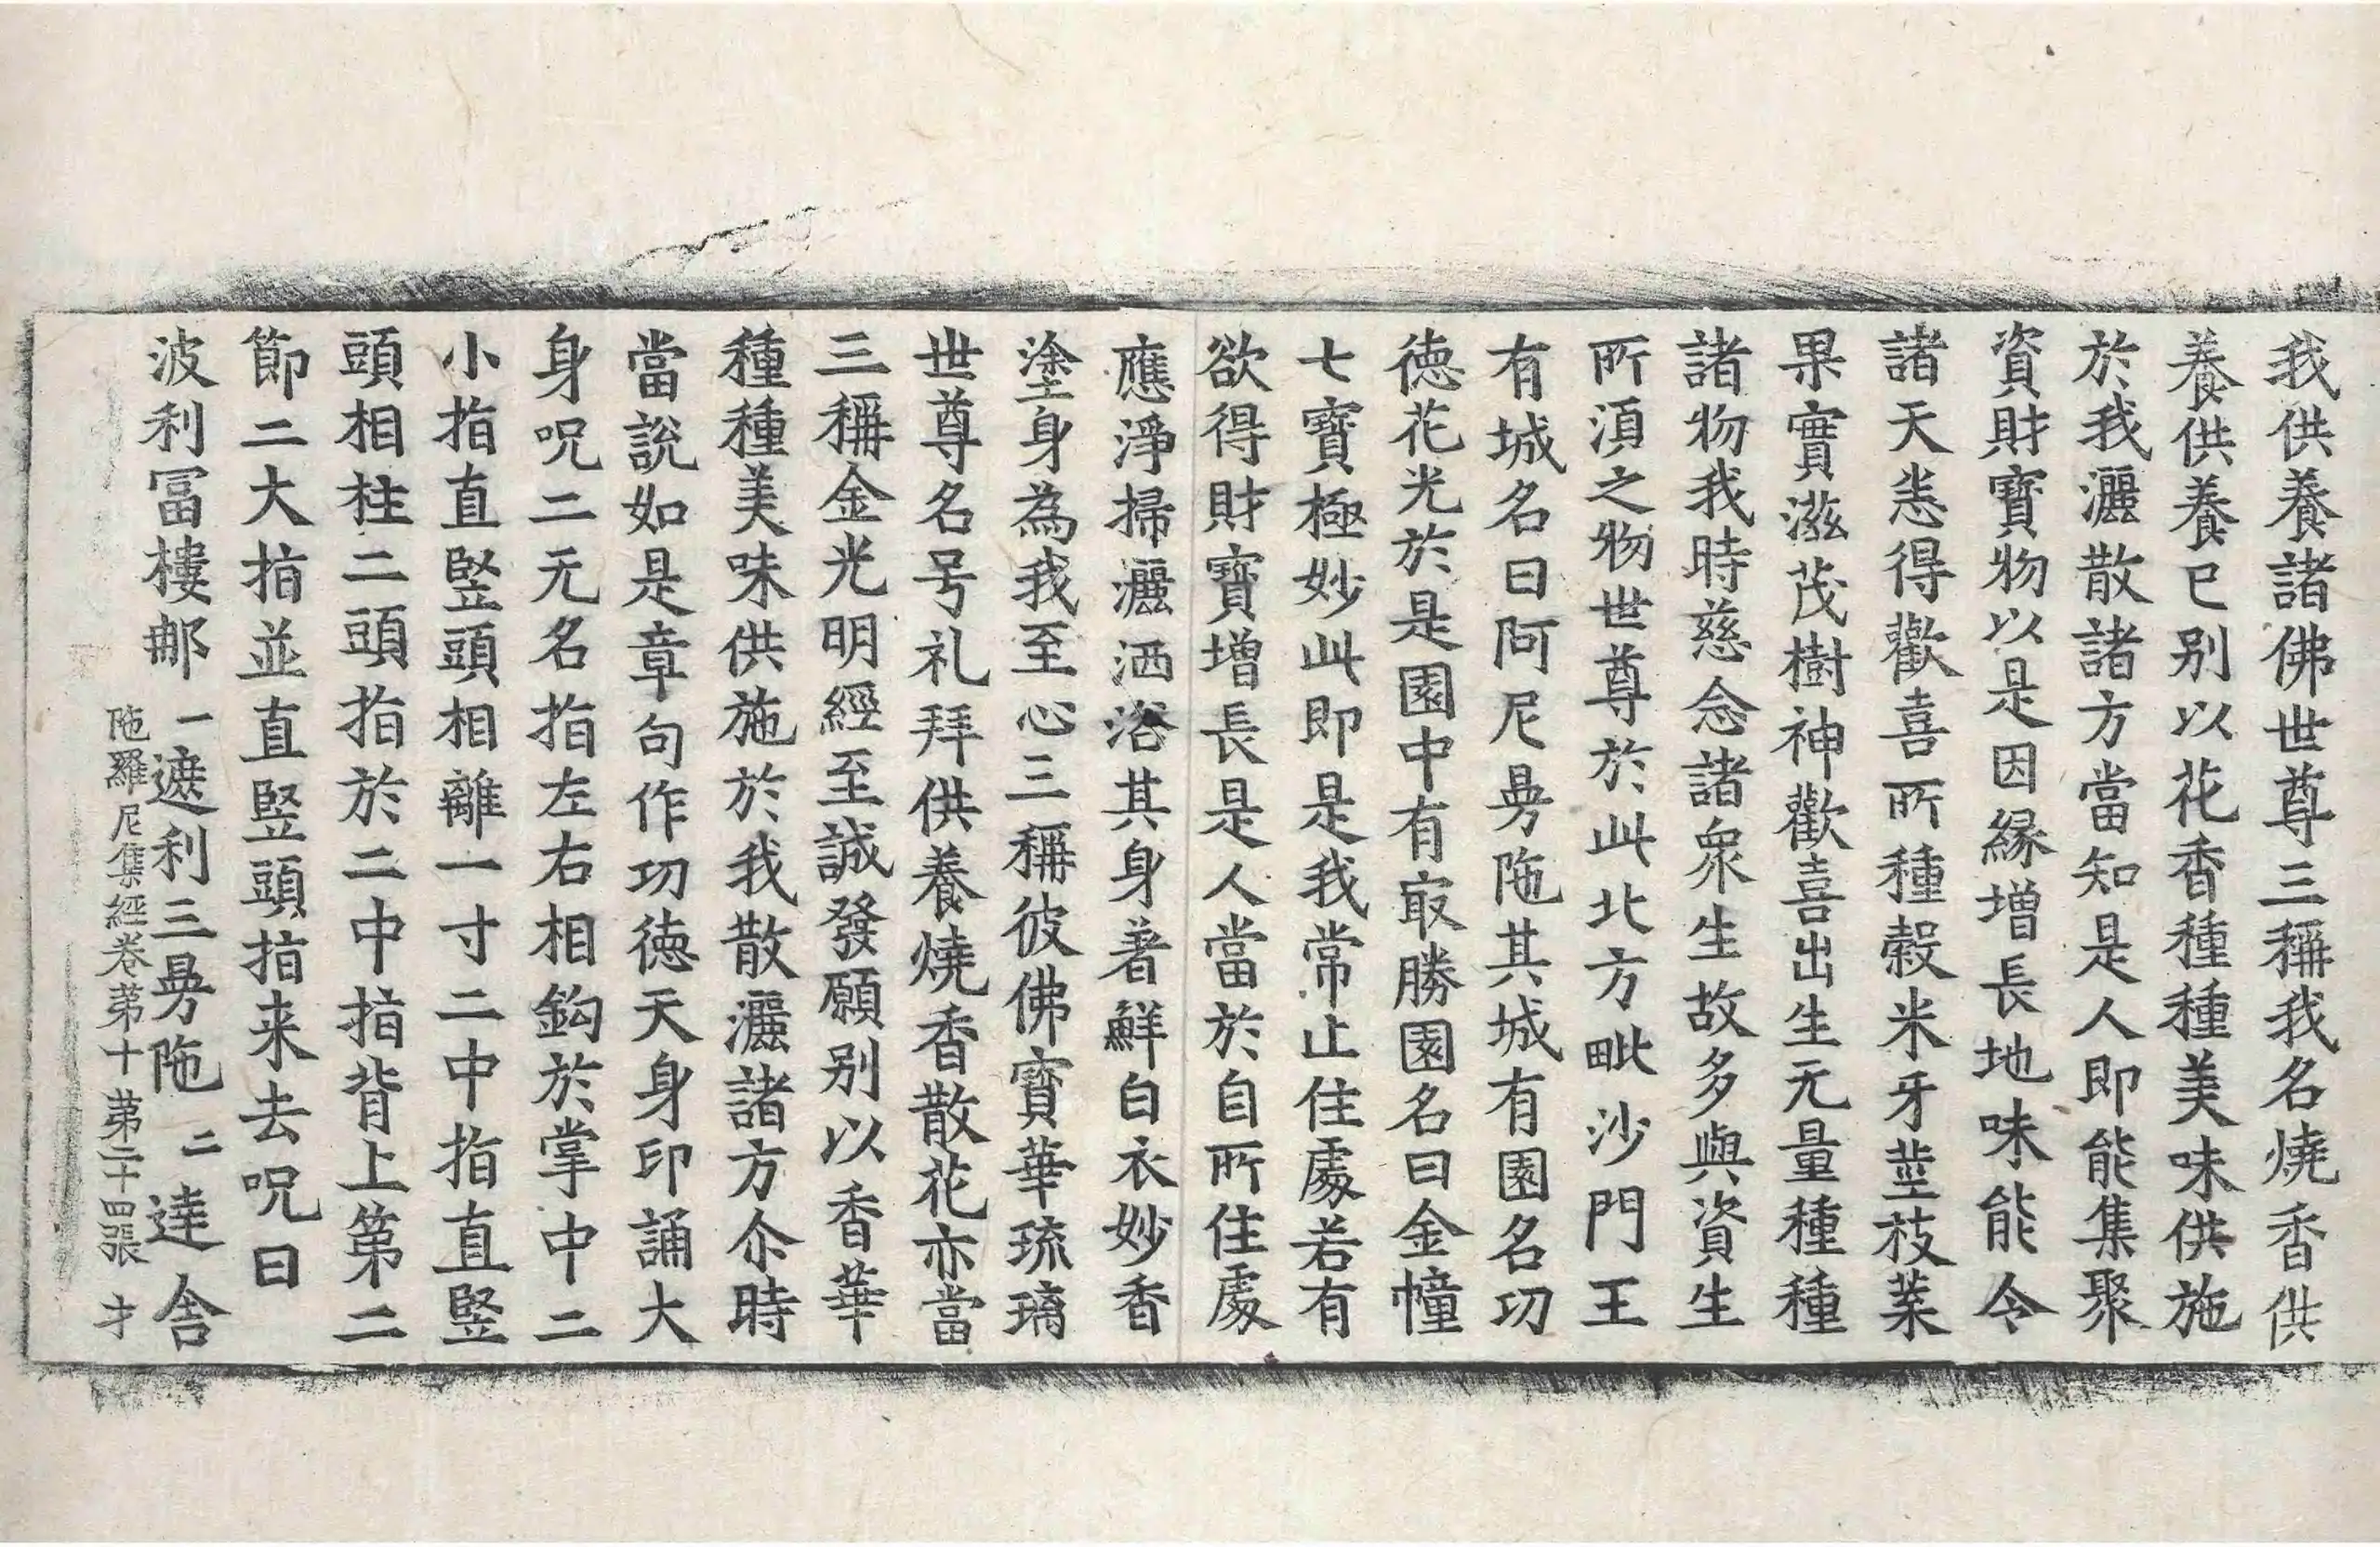 我供養諸佛世尊三稱我名燒香供
養供養已別以花香種種美味供施
於我灑散諸方當知是人即能集聚
資財寶物以是因緣增長地味能令
諸天悉得歡喜所種穀米牙莖枝葉
果實滋茂樹神歡喜出生无量種種
諸物我時慈念諸眾生故多與資生
所須之物世尊於此北方毗沙門王
有城名曰阿尼曼陁其城有園名功
德花光於是園中有㝡勝園名曰金幢
七寶極妙此即是我常止住處若有
欲得財寶增長是人當於自所住處
應淨掃灑洒浴其身著鮮白衣妙香
塗身為我至心三稱彼佛寶華琉璃
世尊名号礼拜供養燒香散花亦當
三稱金光明經至誠發願別以香華
種種美味供施於我散灑諸方尒時
當說如是章句作功德天身印誦大
身呪二无名指左右相鉤於掌中二
小指直竪頭相離一寸二中指直竪
頭相柱二頭指於二中指背上第二
節二大指並直竪頭指来去呪曰
波利冨樓那一遮利三曼陁二達舍
陁羅尼集經卷第十 第二十四張 才